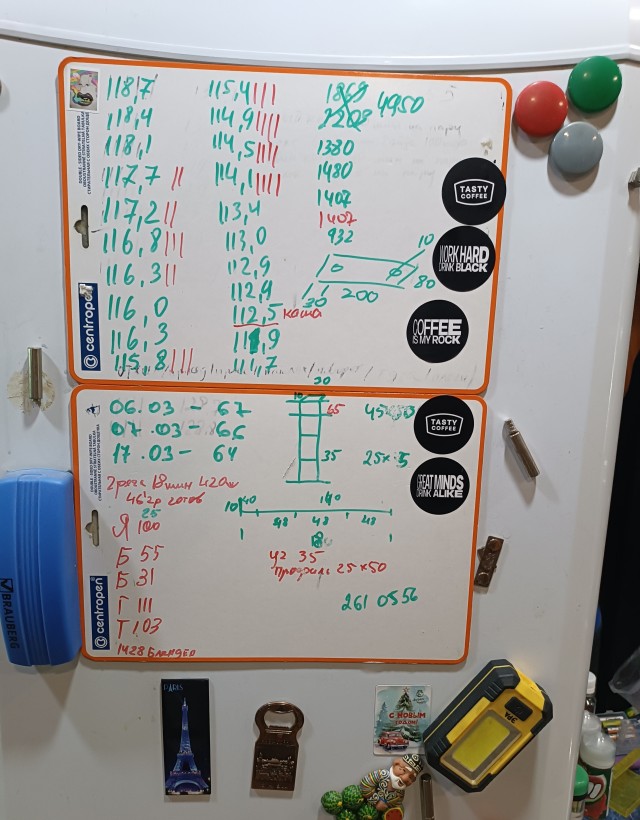 118,7
118,4
118,1
117,7 ||
117,2 ||
116,8 |||
116,3 ||
116,0
116,3
115,8 |||
115,4 |||
114,9 ||||
114,5 ||||
114,1 ||||
113,4
113,0
112,9
112,9
112,5 каша
111,9
111,7
1869
2203 4950
1380
1480
1407
1407
932
10
80
200
30
TASTY
COFFEE
WORK HARD
DRINK BLACK
COFFEE
IS MY ROCK
centropen
06.03 - 67
07.03 - 66
17.03 - 64
20
10
65
35
45
25×
TASTY
COFFEE
GREAT MINDS
DRINK ALIKE
46 гр готов
25
Я 100
Б 55
Б 31
Г 111
Т 103
1428
10 40 140
48 48 48
42 35
25×50
261 0556
centropen
BRAUBERG
PARIS
С НОВЫМ
ГОДОМ!